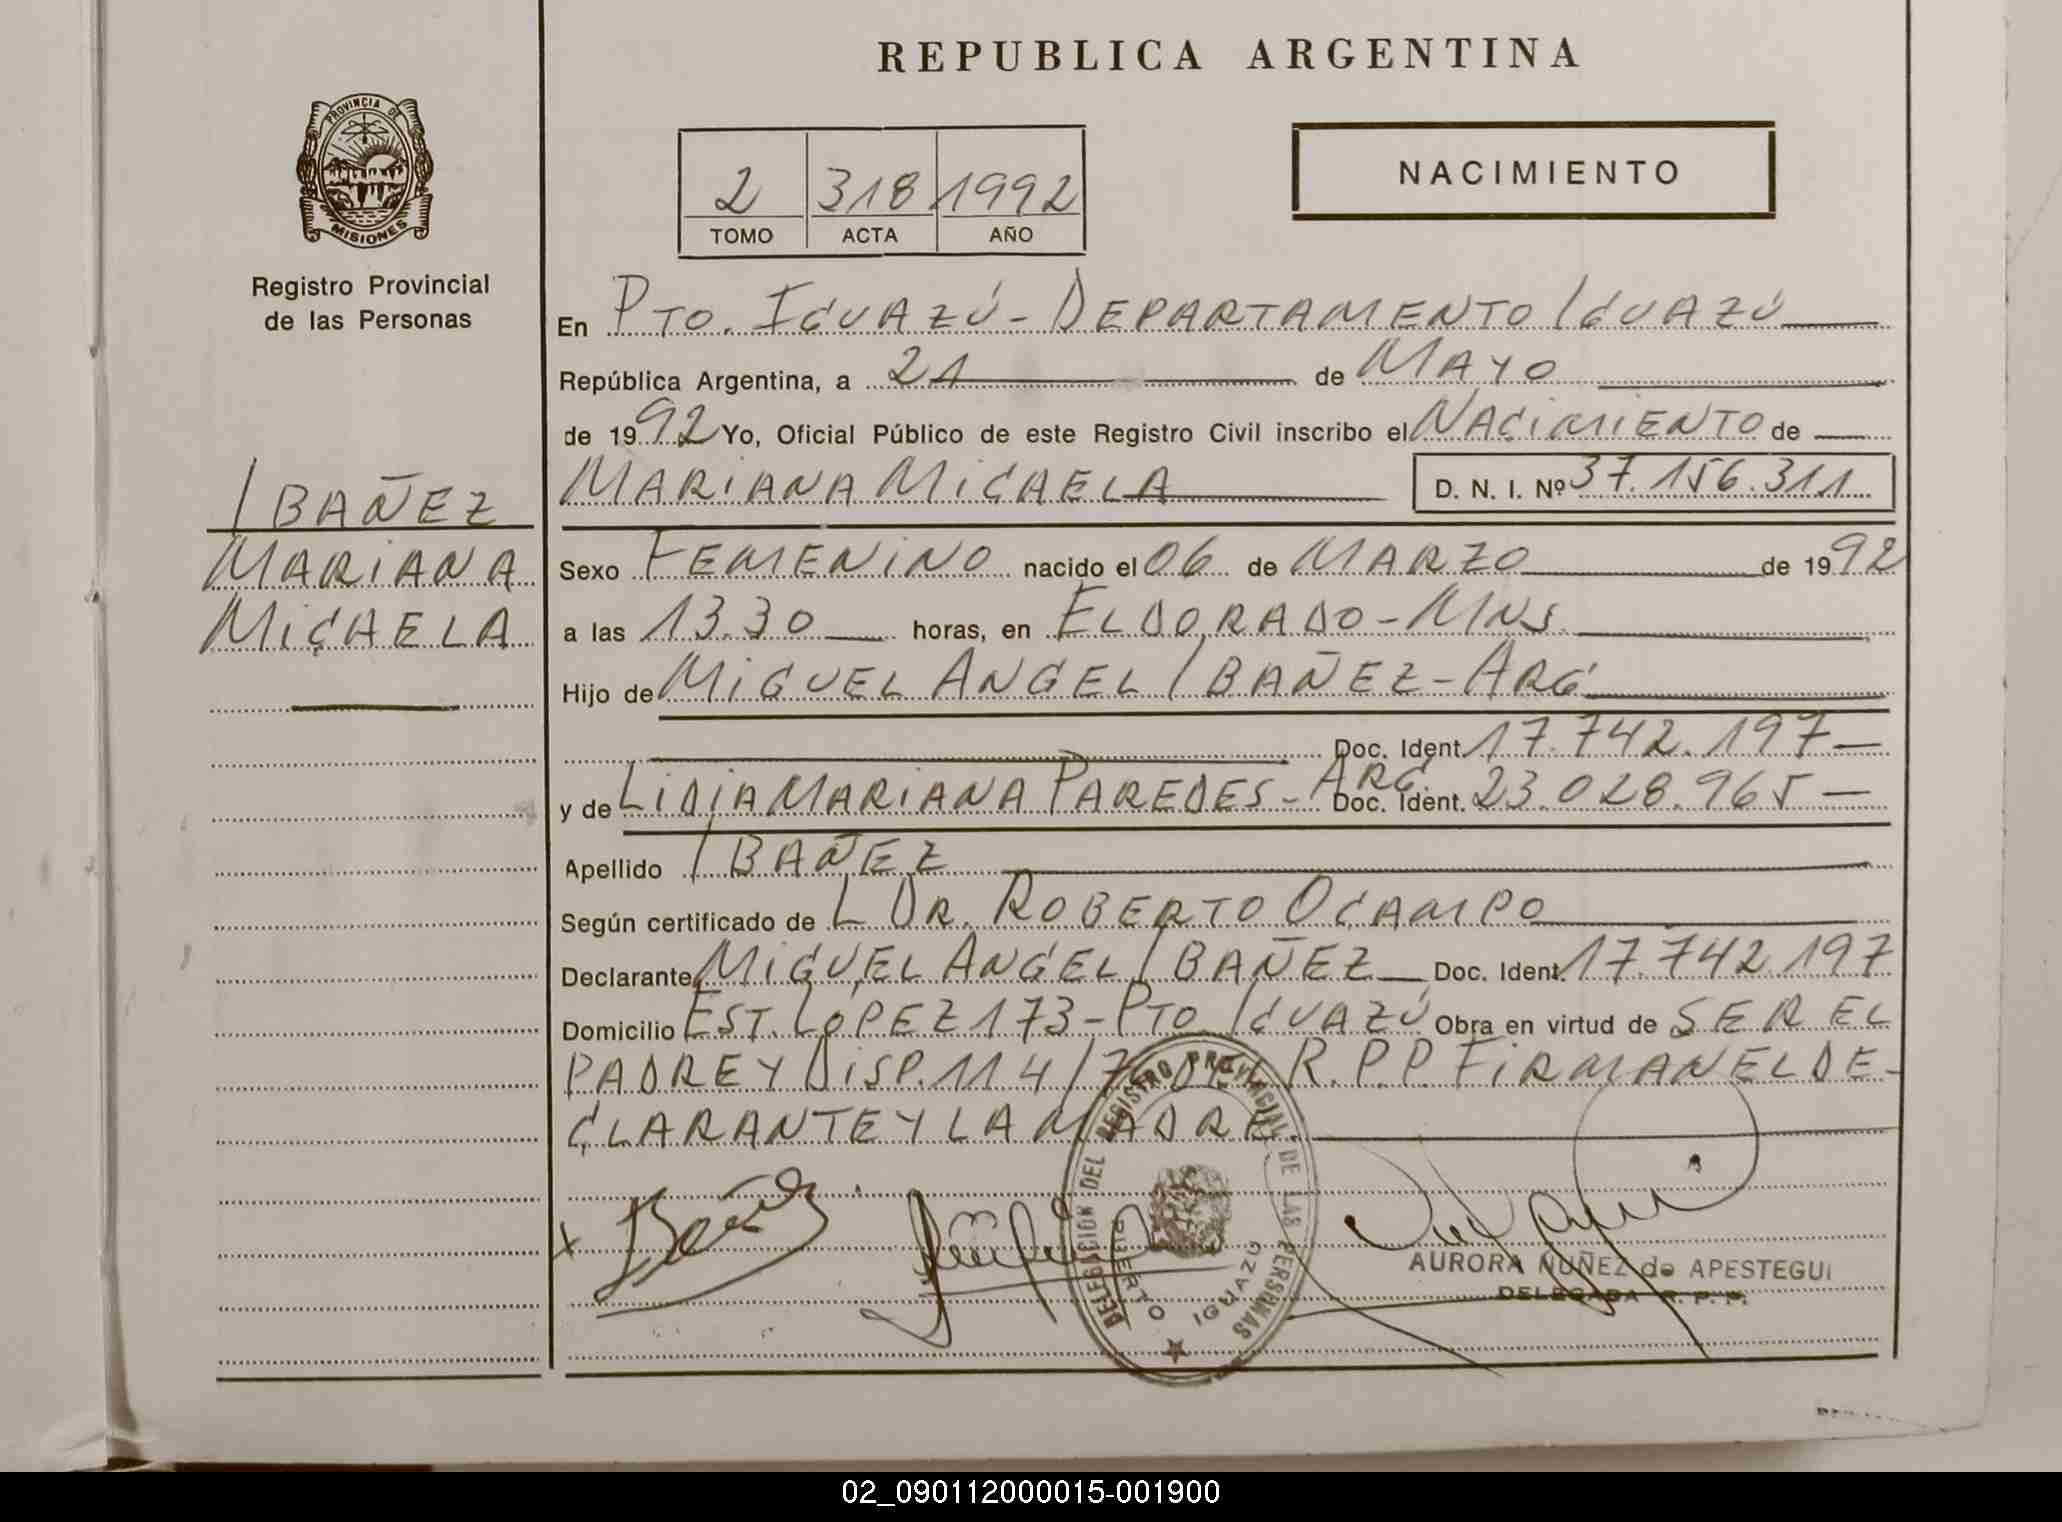 REPUBLICA ARGENTINA
PROVINCIA DE
MISIONES
Registro Provincial
de las Personas
NACIMIENTO
2 318 1992
TOMO ACTA AÑO
En PTO. IGUAZÚ - DEPARTAMENTO IGUAZÚ
República Argentina, a 21 de MAYO
de 1992 Yo, Oficial Público de este Registro Civil inscribo el NACIMIENTO de
MARIANA MICAELA D. N. I. Nº 37.156.311
IBAÑEZ
MARIANA
MICAELA
Sexo FEMENINO nacido el 06 de MARZO de 1992
a las 13.30 horas, en ELDORADO - MNS.
Hijo de MIGUEL ANGEL IBAÑEZ - ARG
Doc. Ident. 17.742.197
y de LIDIA MARIANA PAREDES - ARG. Doc. Ident. 23.028.965
Apellido IBAÑEZ
Según certificado de L DR. ROBERTO OCAMPO
Declarante MIGUEL ANGEL IBAÑEZ Doc. Ident. 17.742.197
Domicilio EST. LÓPEZ 173 - PTO IGUAZÚ Obra en virtud de SER EL
PADRE Y DISP. 114/7 R.P.P. FIRMAN EL DE-
CLARANTE Y LA MADRE.
DELEGACION DEL REGISTRO PROVINCIAL DE LAS PERSONAS
PUERTO IGUAZU
AURORA NUÑEZ de APESTEGUI
DELEGADA R. P. P.
02_090112000015-001900